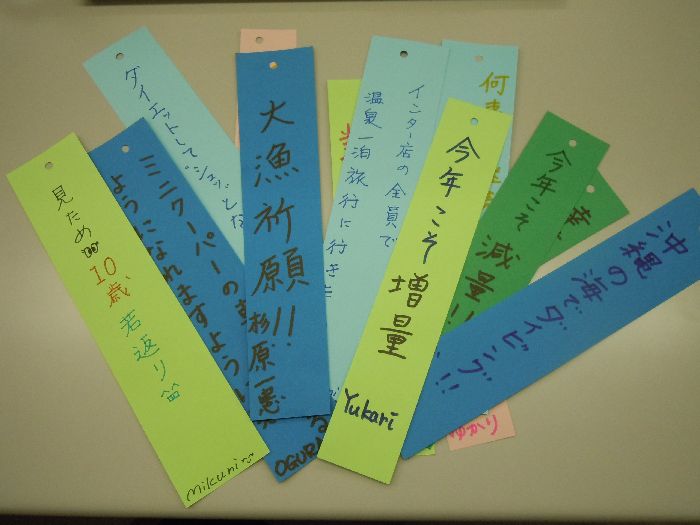 見ため
10歳
若返り
mikuni
ミニクーパーの
ようになれますように
OGURA
ダイエットして"シュッ"とな
大漁祈願!!
杉原一憲
インター店の全員で
温泉一泊旅行に行き
今年こそ増量
Yukari
何
今年こそ減量!!
沖縄の海でダイビング!!